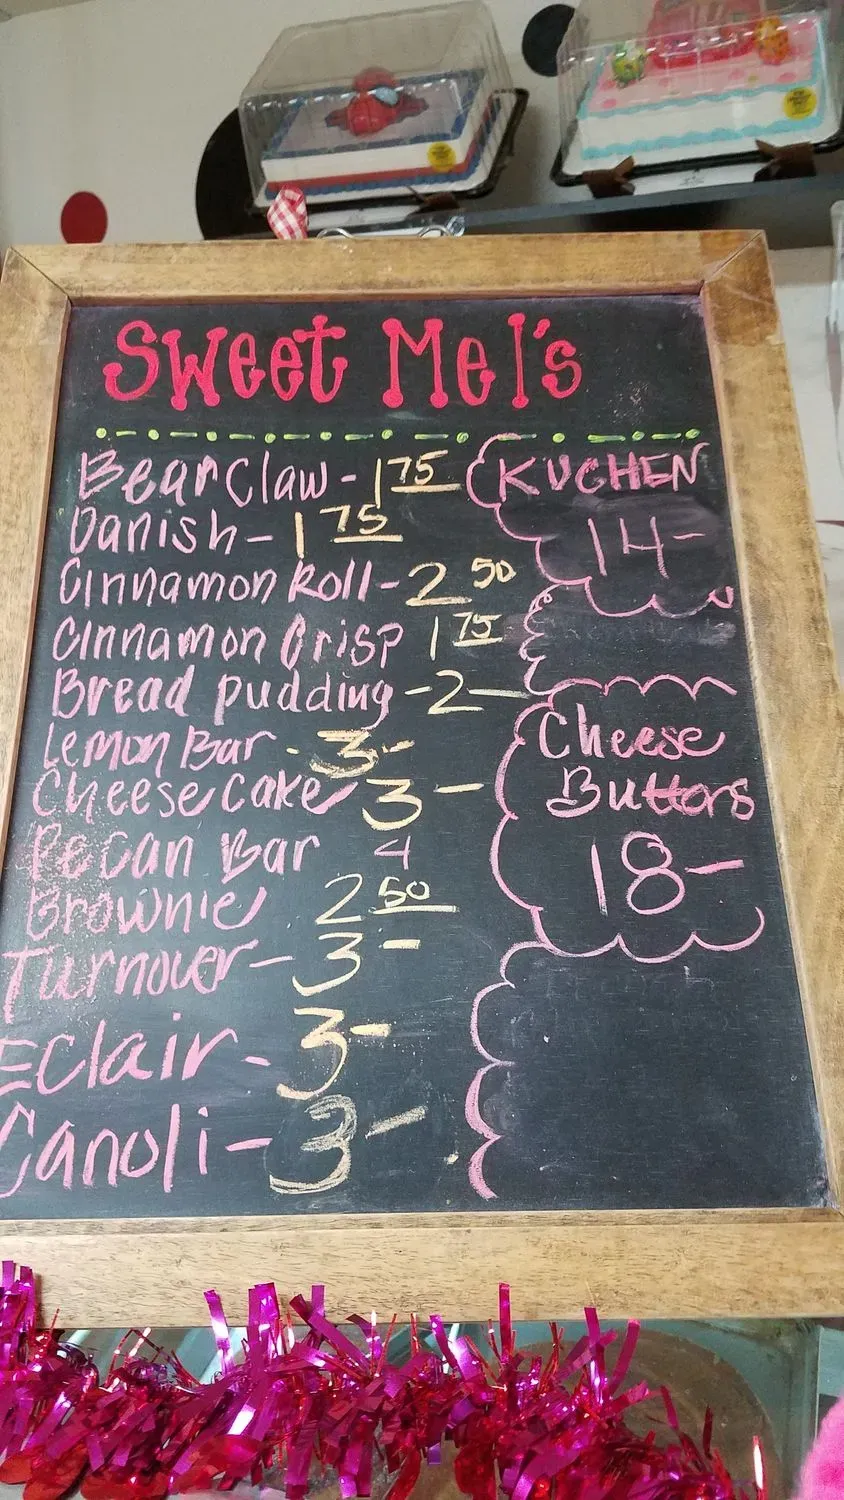 Sweet Mel's
Bear Claw - 1 75
Danish - 1 75
Cinnamon Roll - 2 50
Cinnamon Crisp 1 75
Bread pudding - 2 -
Lemon Bar - 3 -
Cheese Cake 3 -
Pecan Bar 4
Brownie 2 50
Turnover - 3 -
Eclair - 3 -
Canoli - 3 -
KUCHEN
14 -
Cheese
Buttons
18 -